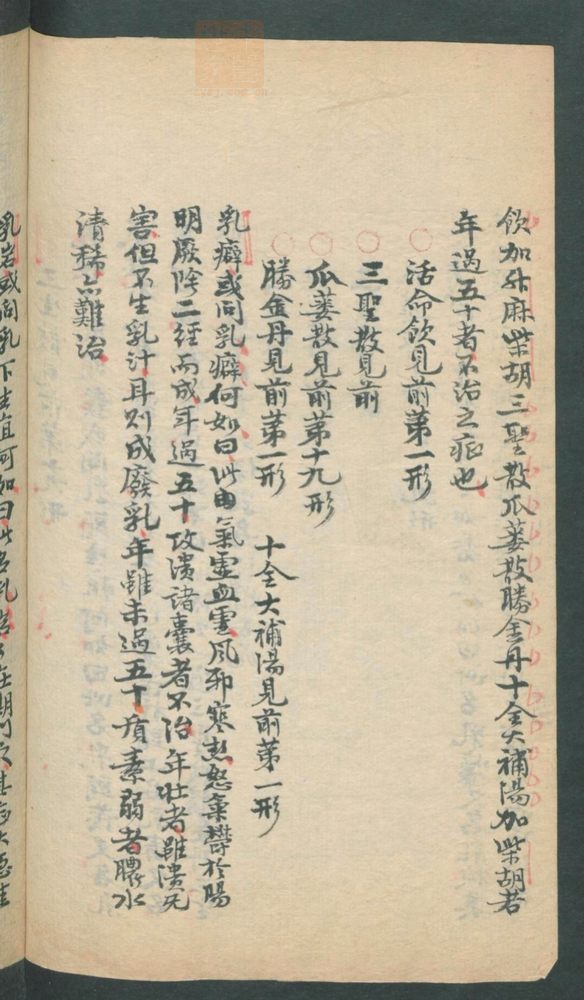 飲加升麻柴胡三聖散瓜蔞散勝金丹十全大補湯加柴胡若
年過五十者不治之症也
活命飲見前第一形
三聖散見前
瓜蔞散見前第十九形
勝金丹見前第一形 十全大補湯見前第一形
乳癖或问乳癖何如曰此由氣虚血虚风邪寒熱怒氣欝於陽
明厥陰二經而成年過五十攻潰諸囊者不治年壮者雖潰无
害但不生乳汁耳則成廢乳年雖未過五十質素弱者膿水
清稀亦難治
乳岩或问乳下生疽何如曰此名乳岩